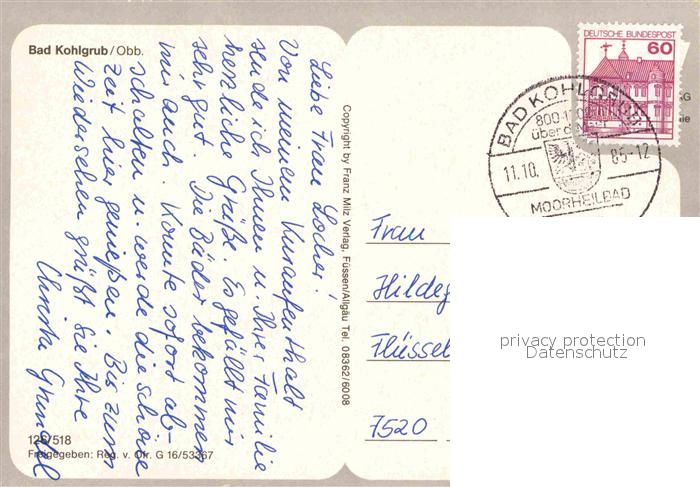 Bad Kohlgrub/Obb.
Liebe Frau Locher!
Von meinem Kuraufenthalt
sende ich Ihnen u. Ihrer Familie
herzliche Grüße. Es gefällt mir
sehr gut. Die Bäder bekommen
mir auch. Konnte sofort ab-
schalten u. werde die schöne
Zeit hier genießen. Bis zum
Wiedersehen grüßt Sie Ihre
Christa
126/518
Freigegeben: Reg. v. Ofr. G 16/53367
Copyright by Franz Milz Verlag, Füssen/Allgäu Tel. 08362/6008
DEUTSCHE BUNDESPOST
60
BAD KOHLGRUB
800-1000
über d.
11.10. 85-12
MOORHEILBAD
Frau
Hildeg
Flüssel
7520
privacy protection
Datenschutz